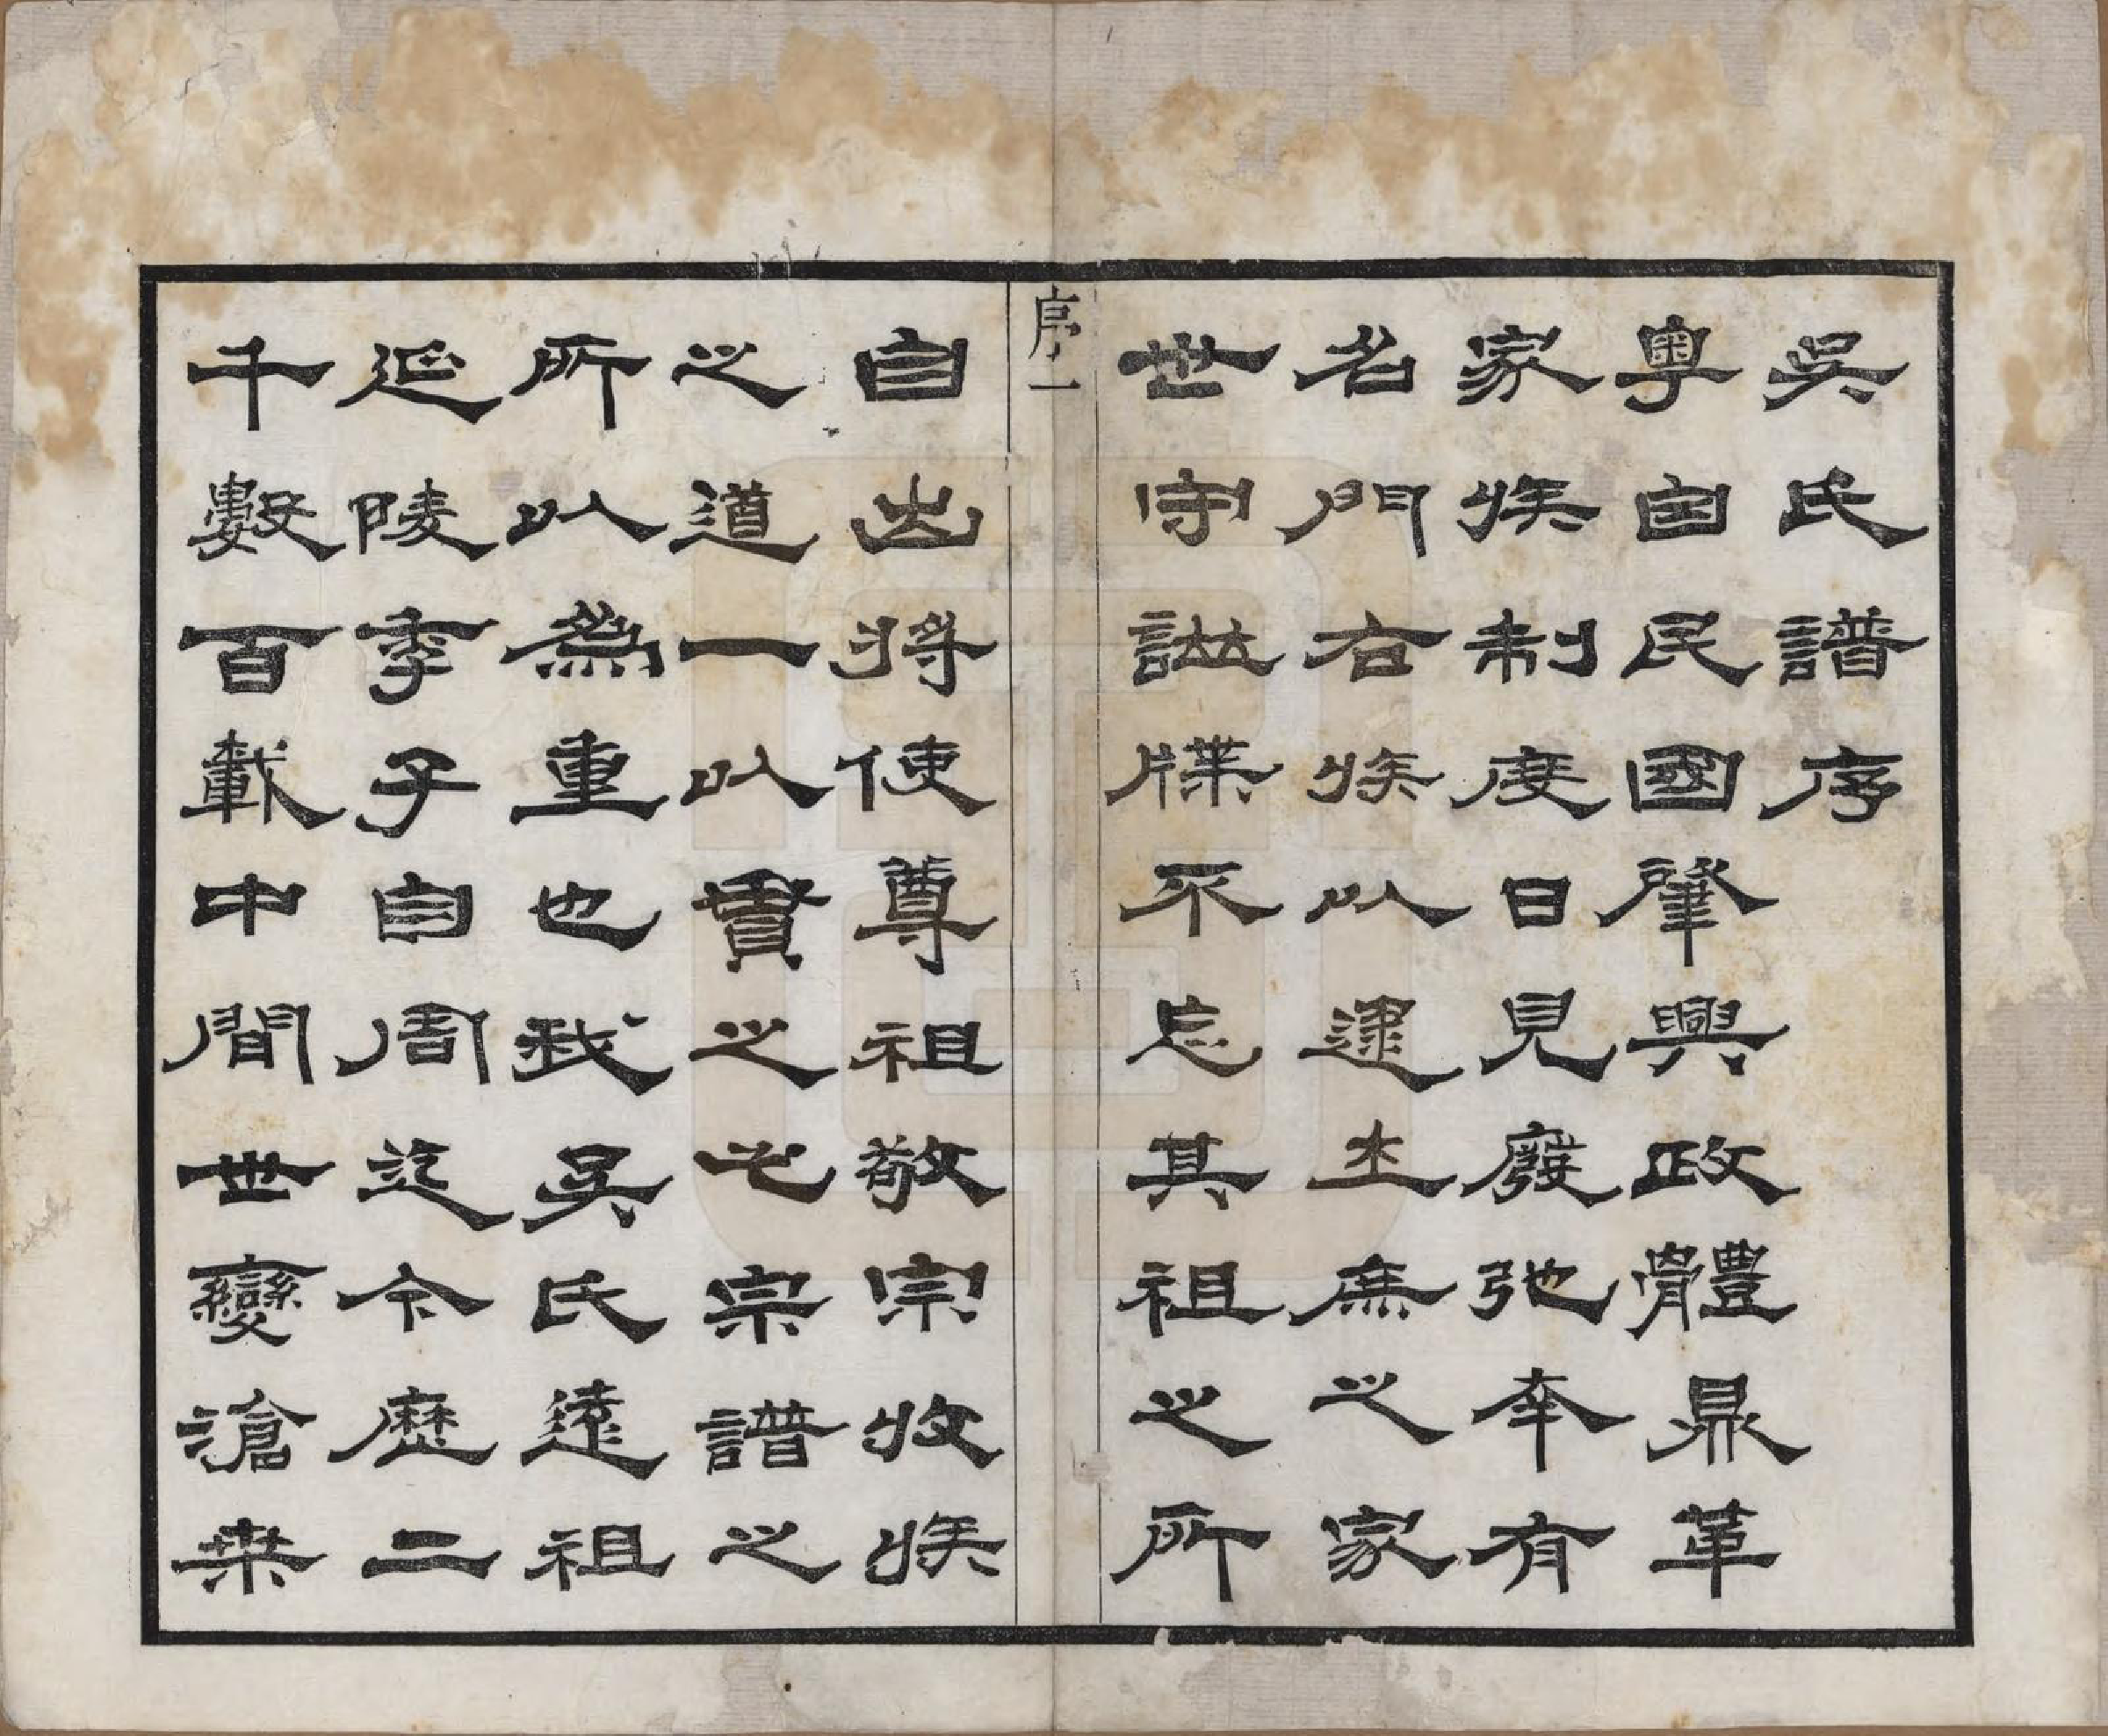 吳氏譜序
粵自民國肇興政體鼎革
家族制度日見廢弛幸有
名門右族以逮士庶之家
世守諩牒不忘其祖之所
序一
自出將使尊祖敬宗收族
之道一以貫之此宗譜之
所以為重也我吳氏遠祖
延陵季子自周迄今歷二
千數百載中間世變滄桑